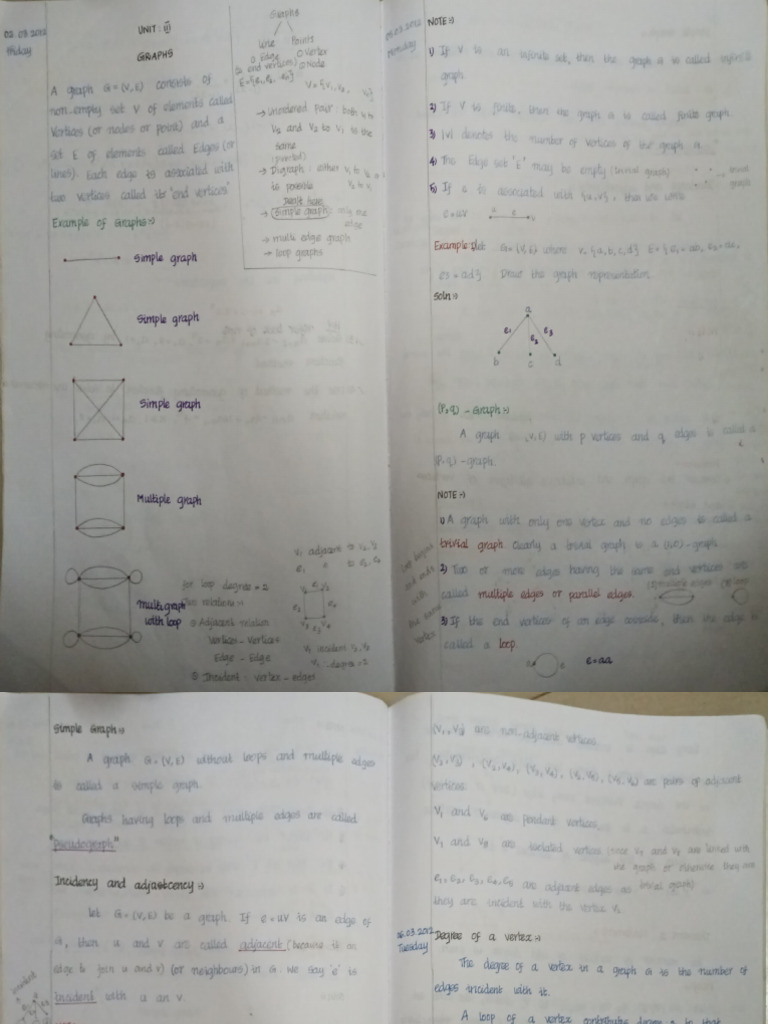 02.03.2012
Friday
UNIT: III
GRAPHS
A graph G=(V,E) consists of
non empty set V of elements called
Vertices (or nodes or point) and a
set E of elements called Edges (or
lines). Each edge is associated with
two vertices called its 'end vertices'
Example of Graphs:-
Simple graph
Simple graph
Simple graph
Multiple graph
multigraph
with loop
Graphs
Line Points
Edge Vertex
end vertices) Node
→ Unordered pair: both v1 to
v2 and v2 to v1 is the
same
→ Digraph: either v1 to v2 or
is possible v2 to v1
→ Simple graph: only one
edge
→ multi edge graph
→ loop graphs
for loop degree = 2
relations:-
Adjacent relation
Vertices - Vertices
Edge - Edge
Incident: vertex - edges
V1 adjacent to V2, V3
V1 incident
V1 degree = 2
NOTE:-
1) If V is an infinite set, then the graph G is called infinite
graph.
2) If V is finite, then the graph G is called finite graph.
3) |V| denotes the number of vertices of the graph G.
4) The Edge set 'E' may be empty (trivial graph)
5) If e is associated with {u,v}, then we write
e=uv
Example: Let G=(V,E) where V={a,b,c,d} E={e1=ab, e2=ac,
e3=ad} Draw the graph representation.
Soln:-
a
e1 e2 e3
b c d
(P,q) - Graph:-
A graph (V,E) with p vertices and q edges is called a
(P,q) - graph.
NOTE:-
1) A graph with only one vertex and no edges is called a
trivial graph. Clearly a trivial graph is a (1,0)-graph.
2) Two or more edges having the same end vertices are
called multiple edges or parallel edges.
3) If the end vertices of an edge coincide, then the edge is
called a loop.
a e e=aa
Simple Graph:-
A graph G=(V,E) without loops and multiple edges
is called a simple graph.
Graphs having loops and multiple edges are called
"Pseudograph"
Incidency and adjacency:-
Let G=(V,E) be a graph. If e=uv is an edge of
G, then u and v are called adjacent (because it an
edge e join u and v) (or neighbours) in G. We say 'e' is
incident with u an v.
are non-adjacent vertices.
are pairs of adjacent
vertices.
V1 and V6 are pendant vertices.
V7 and V8 are isolated vertices (since V7 and V8 are
the graph or otherwise they are
trivial graph)
e1, e2, e3, e4, e5 are adjacent edges as
they are incident with the vertex V2.
06.03.2012
Tuesday
Degree of a vertex:-
The degree of a vertex in a graph G is the number of
edges incident with it.
A loop of a vertex contributes degree 2 in that